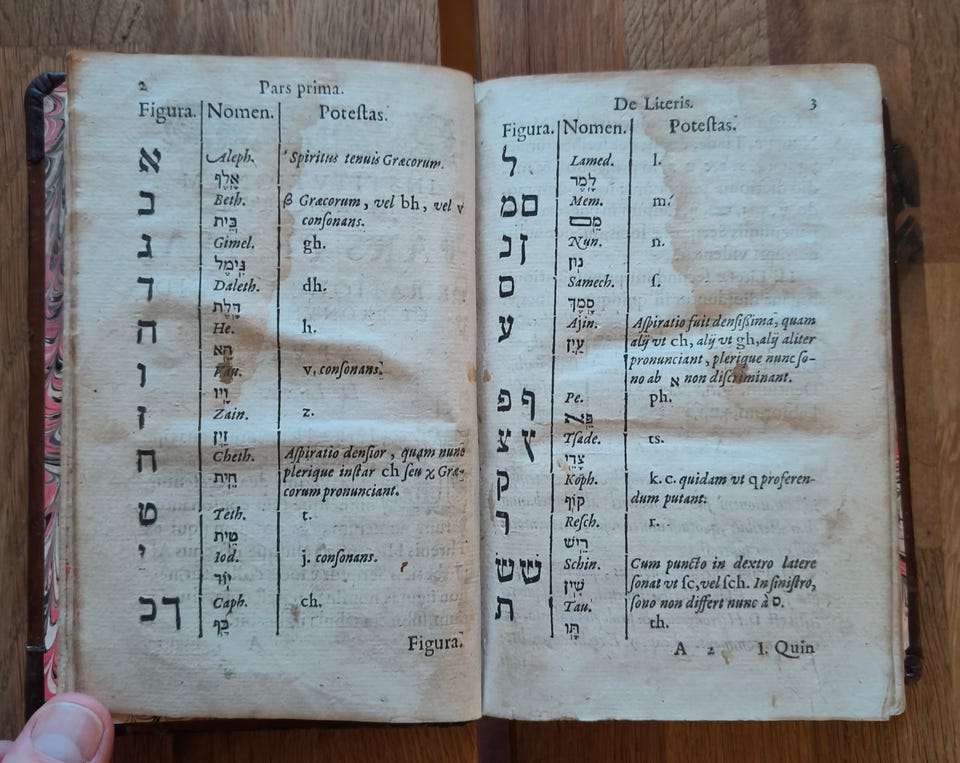 2 Pars prima.
Figura. Nomen. Poteſtas.
א Aleph. ʽSpiritus tenuis Græcorum.
אָלֶף
ב Beth. β Græcorum, vel bh, vel v
בֵּית conſonans.
ג Gimel. gh.
גִּימֶל
ד Daleth. dh.
דָּלֶת
ה He. h.
הֵא
ו Vau. v, conſonans.
וָיו
ז Zain. z.
זַיִן
ח Cheth. Aſpiratio denſior, quam nunc
חֵית plerique inſtar ch ſeu χ Græ-
corum pronunciant.
ט Teth. t.
טֵית
י Iod. j. conſonans.
יוֹד
כך Caph. ch.
כַּף
Figura.
De Literis. 3
Figura. Nomen. Poteſtas.
ל Lamed. l.
לָמֶד
מם Mem. m.
מֵם
נן Nun. n.
נוּן
ס Samech. ſ.
סָמֶךְ
ע Ajin. Aſpiratio fuit denſiſsima, quam
עַיִן alij vt ch, alij vt gh, alij aliter
pronunciant, plerique nunc ſo-
no ab א non diſcriminant.
פ ף Pe. ph.
פֵּא
צ ץ Tſade. ts.
צָדֵי
ק Koph. k. c. quidam vt q proferen-
קוֹף dum putant.
ר Reſch. r.
רֵישׁ
שׁשׂ Schin. Cum puncto in dextro latere
שִׁין ſonat vt ſc, vel ſch. In ſiniſtro,
ת Tau. ſono non differt nunc à ס.
תָּו th.
A 2 I. Quin